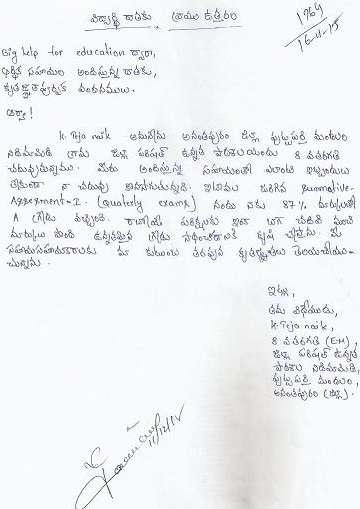 విద్యార్థి దాతకు వ్రాయు ఉత్తరం
1764
16-11-15
Big help for education ద్వారా,
ఆర్థిక సహాయం అందిస్తున్న దాతకు,
కృతజ్ఞతాపూర్వక వందనములు.
ఆర్యా!
K. Teja naik అనునేను అనంతపురం జిల్లా పుట్టపర్తి మండలం
నిడిమామిడి గ్రామ జిల్లా పరిషత్ ఉన్నత పాఠశాలయందు 8 వతరగతి
చదువుచున్నాను. మీరు అందిస్తున్న సహాయంతో ఎలాంటి ఇబ్బందులు
లేకుండా నా చదువు కొనసాగుతున్నది. ఇటీవల జరిగిన Summative-
Assessment-I. (Quaterly exams) నందు నాకు 87% మార్కులతో
A గ్రేడు వచ్చింది. రాబోయే పరీక్షలకు ఇంకా బాగా చదివి మంచి
మార్కులు పొంది ఉన్నతమైన గ్రేడు సాధించడానికి కృషి చేస్తాను. మీ
సహాయసహకారాలకు మా కుటుంబ తరపున కృతజ్ఞతలు తెలియచేయు-
చున్నాను.
ఇట్లు,
తమ విధేయుడు,
K. Teja naik,
8 వతరగతి (E.M),
జిల్లా పరిషత్ ఉన్నత
పాఠశాల నిడిమామిడి,
పుట్టపర్తి మండలం,
అనంతపురం (జిల్లా).